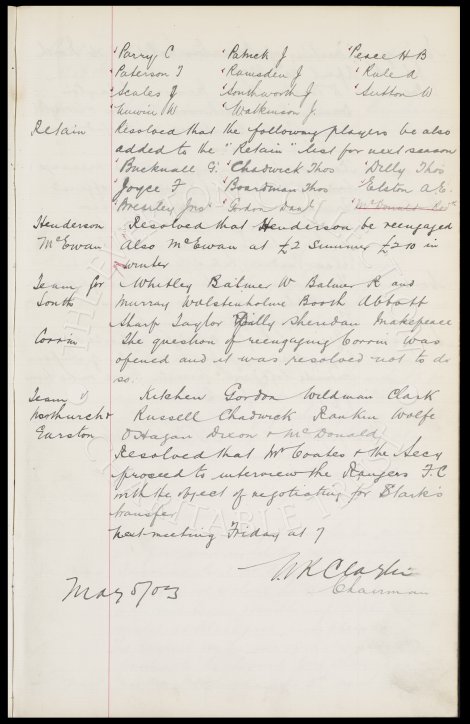 Parry C Patrick J Peace H B
Paterson T Ramsden J Rule A
Scales J Southworth J Sutton W
Unwin W Watkinson J.
Retain Resolved that the following players be also
added to the "Retain" list for next season
Bucknall G. Chadwick Thos Dilly Thos
Joyce F Boardman Thos Elston A E.
Brearley Jno Gordon Danl McDonald
Henderson Resolved that Henderson be reengaged
McEwan Also McEwan at £2 Summer £2 10 in
winter
Team for Whitley Balmer W Balmer R and
South Murray Wolstenholme Booth Abbott
Sharp Taylor Dilly Sheridan Makepeace
Corrin The question of reengaging Corrin was
opened and it was resolved not to do
so.
Team v Kitchen Gordon Wildman Clark
Northwich & Russell Chadwick Rankin Wolfe
Earlston O'Hagan Dixon & McDonald
Resolved that Mr Coates & the Secy
proceed to interview the Rangers F.C
with the object of negotiating for Starks
transfer
Next meeting Friday at 7
W R Clayton
Chairman
May 5/03